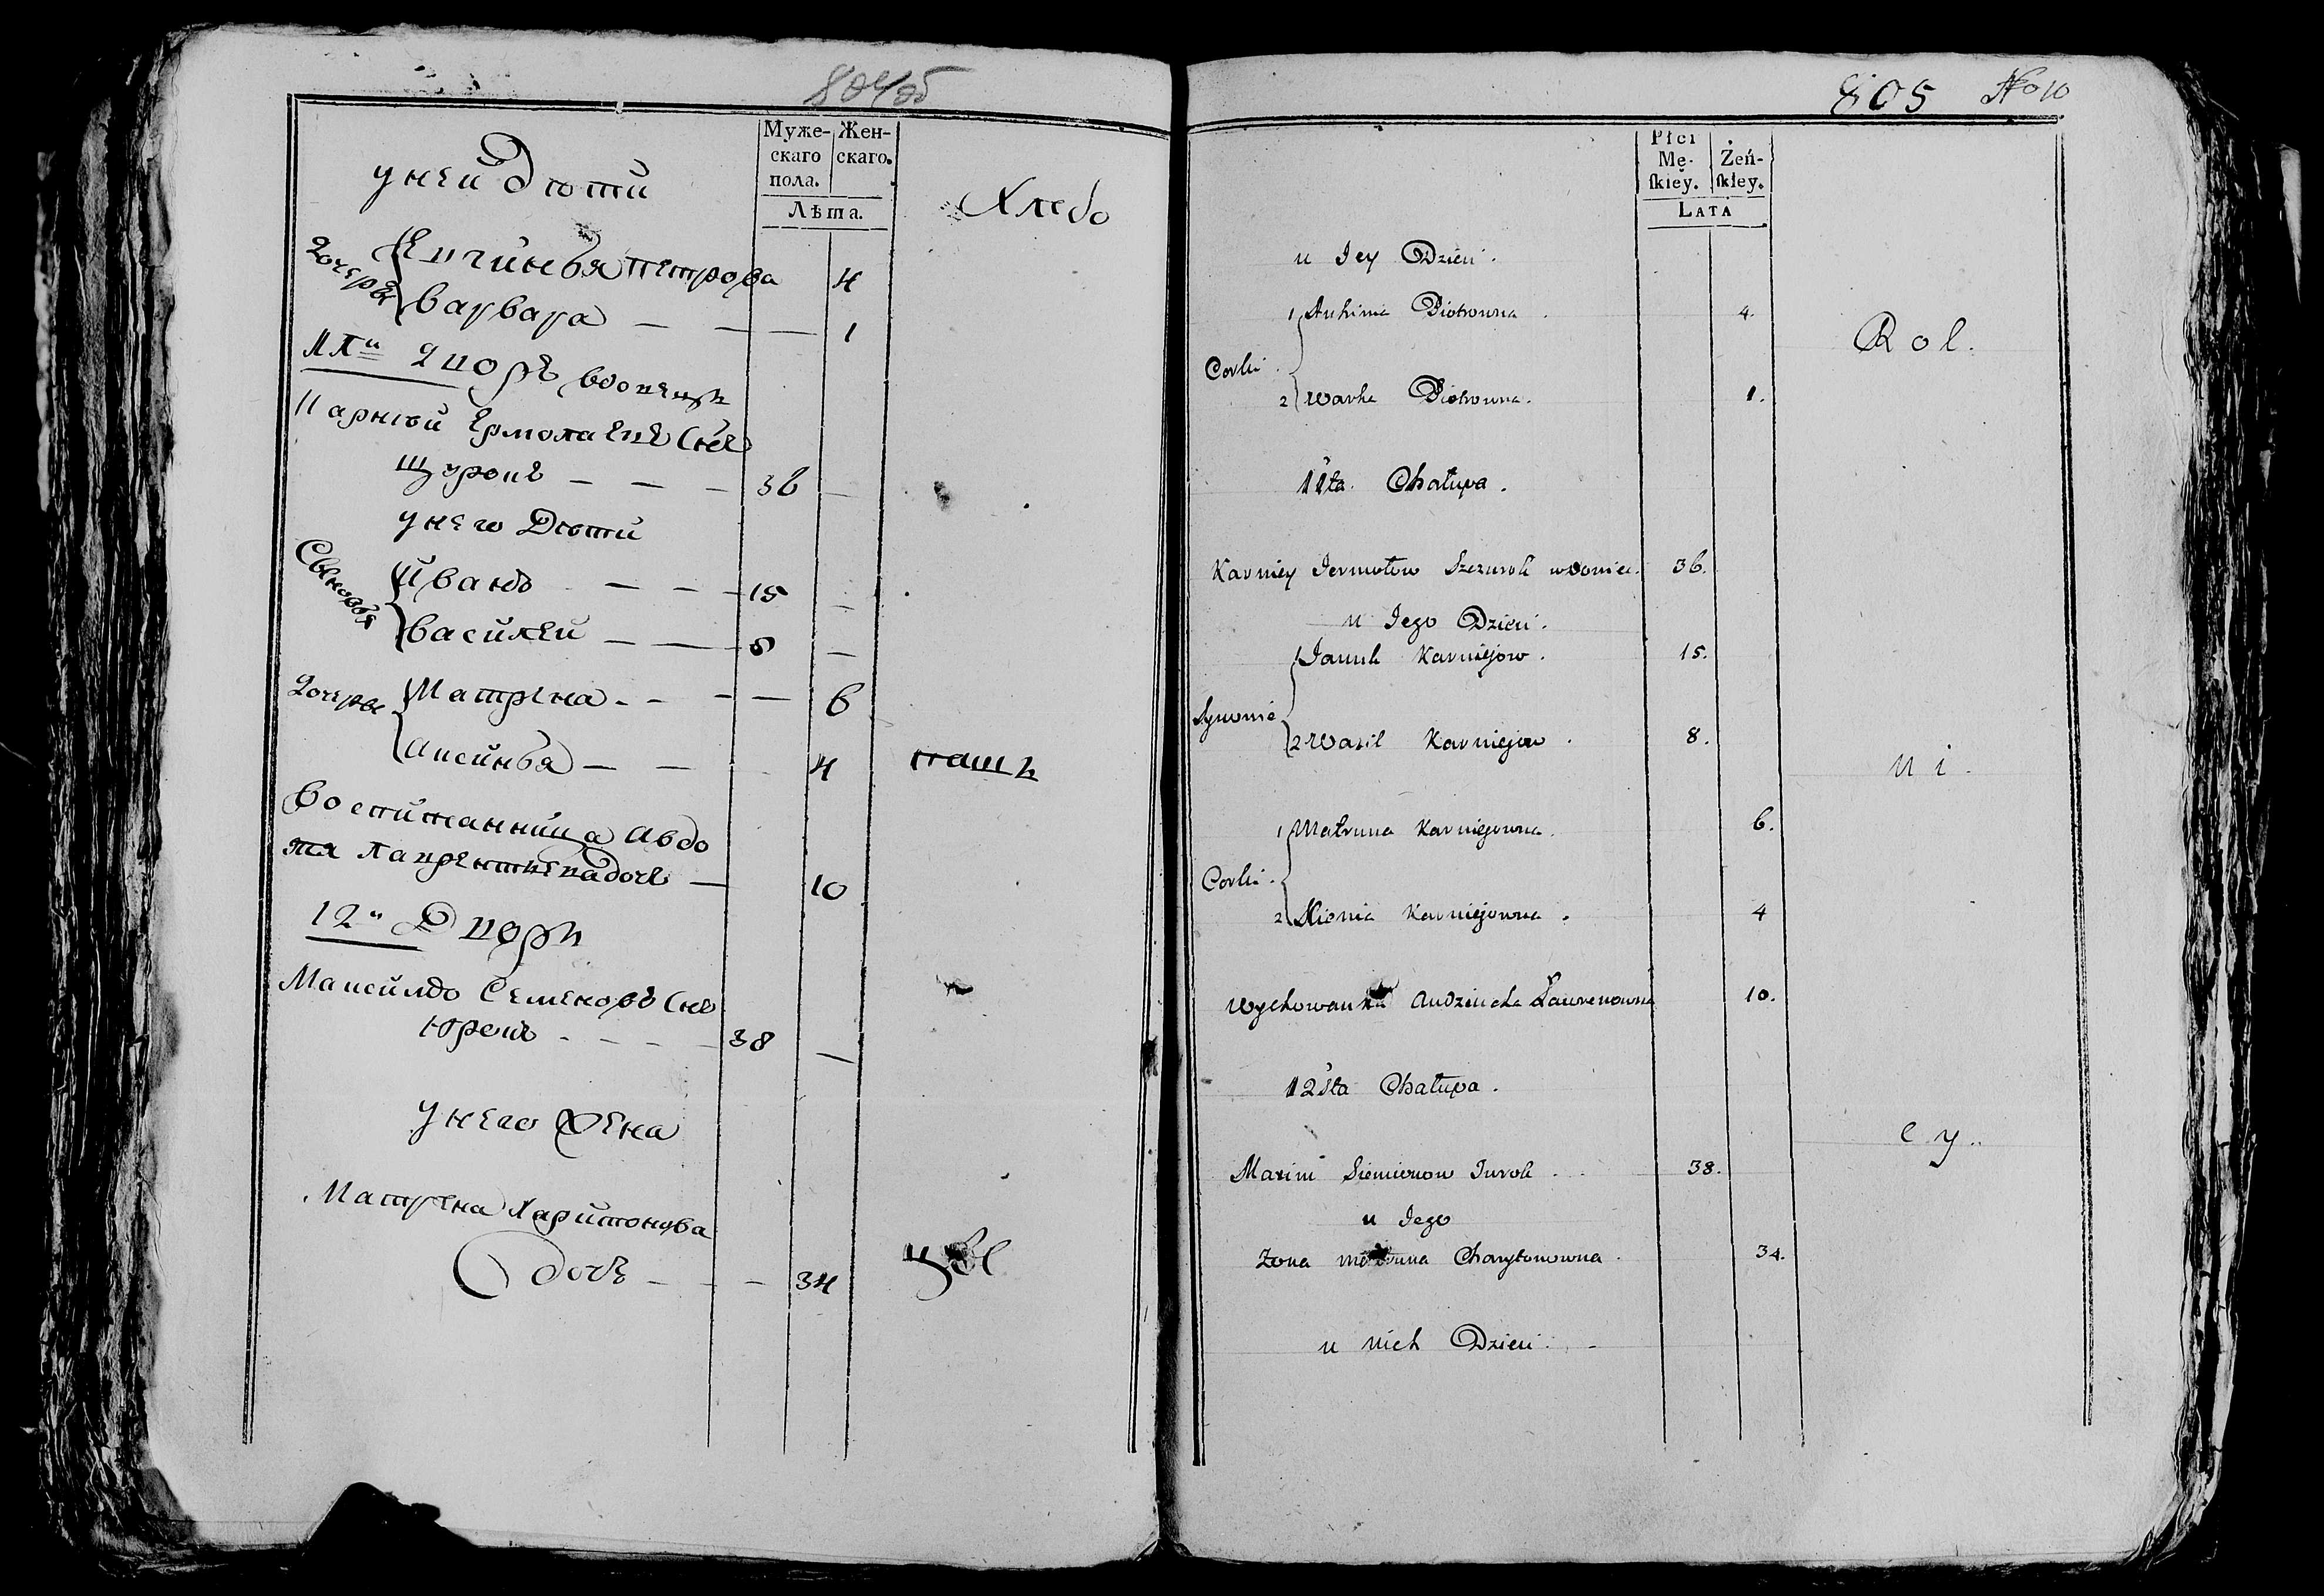 804об
Муже- Жен-
скаго скаго.
пола.
Лѣта.
у ней дѣти
Хлебо
дочери
Евгинья Петрова 4
варвара — — — 1
11й дворъ вдовецъ
Карнѣй Ермолаевъ Снъ
Щуронъ — — — 36 —
у него Дѣти
Сыновья
Иванъ — — — 15 —
василей — — 8 —
дочери
Матрена - - - — 6
Аксинья — — 4
паш
воспитанница Авдо
тя Лаврентиева дочь — 10
12й Дворъ
Максимъ Семеновъ Снъ
Юрекъ - - - - 38 —
у него жена
Матрена Харитонова
дочь - - — 34
цы
805 No 10
Płci
Mę- Żeń-
skiey. skiey.
LATA
u Jey Dzieci.
Corki.
1 Auhinia Piotrowna. 4.
Rol.
2 Warka Piotrowna. 1.
11sta Chałupa.
Karniey Jermołow Szczurok wdowiec. 36.
u Jego Dzieci.
Synowie
1 Januk Karniejow. 15.
2 Wasil Karniejow. 8.
ni.
Corki.
1 Matruna Karniejowna. 6.
2 Xienia Karniejowna. 4
Wychowanka Audziucha Ławrenowna 10.
12sta Chałupa.
cy..
Maxim Siemionow Jurok. 38.
u Jego
Żona Matruna Charytonowna. 34.
u nich Dzieci.